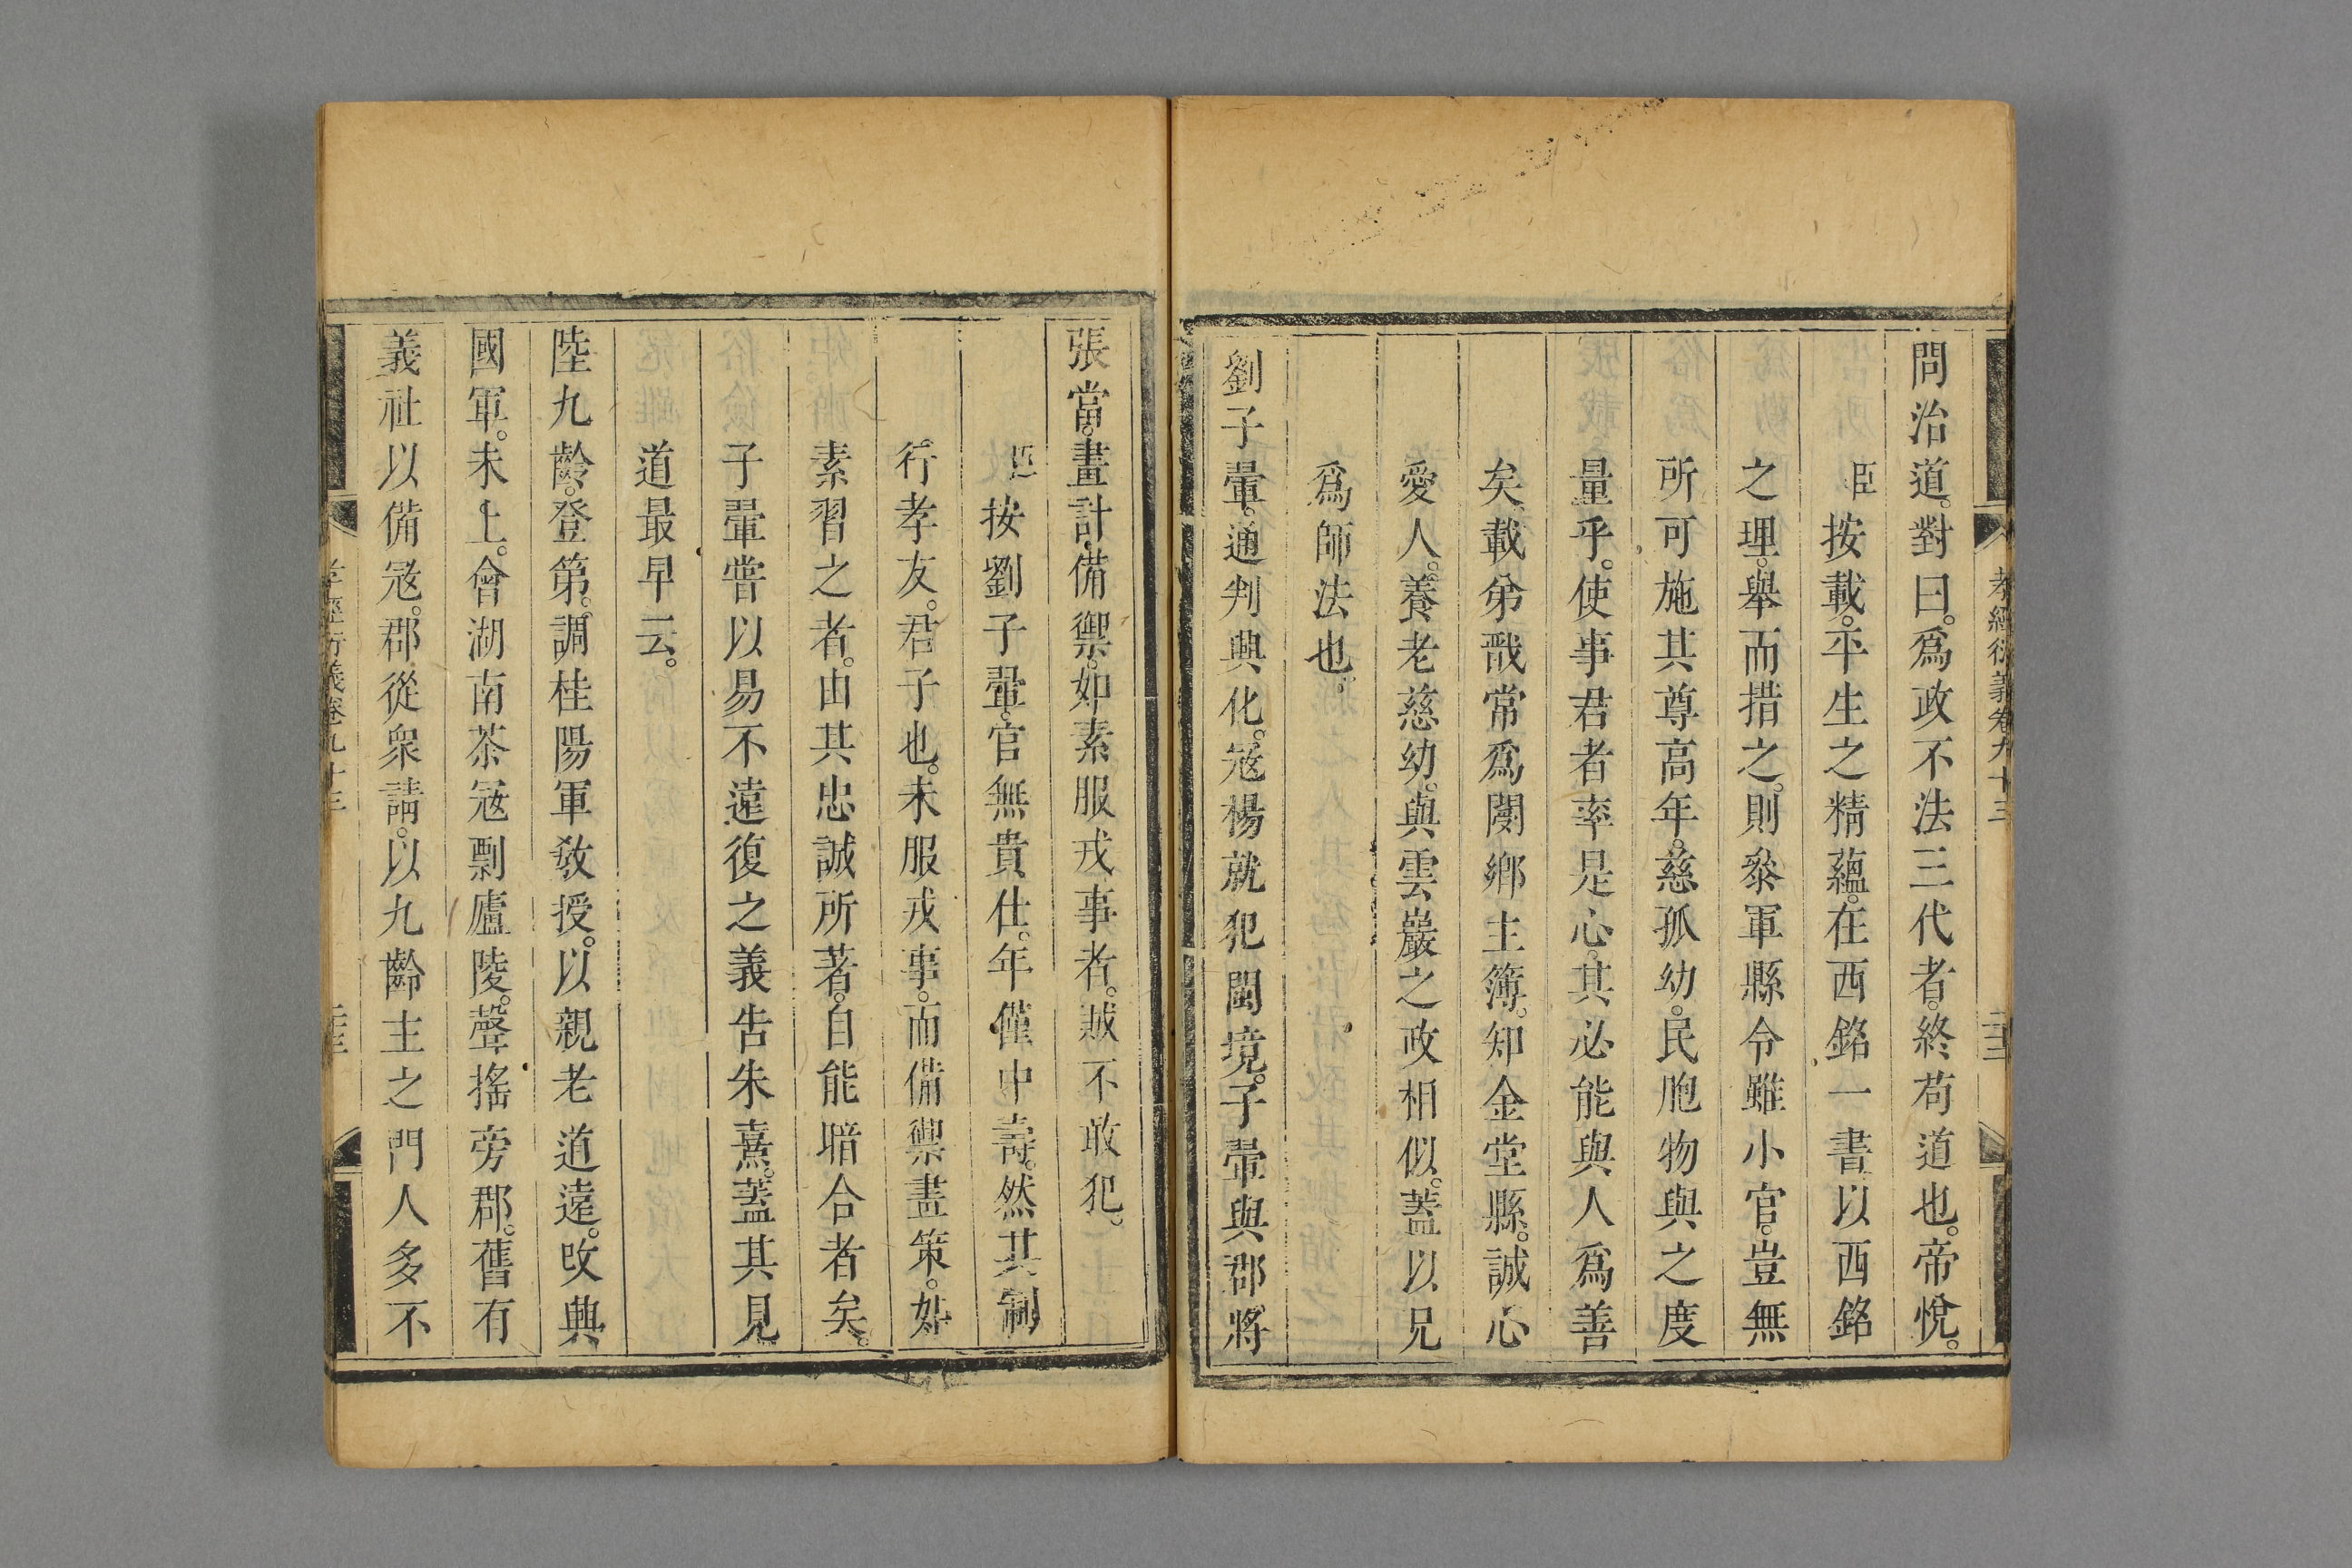 孝經衍義卷九十三
二十二
問治道。對曰。爲政不法三代者。終苟道也。帝悅。
臣按載。平生之精蘊。在西銘一書以西銘
之理。舉而措之。則叅軍縣令雖小官。豈無
所可施其尊高年。慈孤幼。民胞物與之度
量乎。使事君者率是心。其必能與人爲善
矣。載弟戩常爲閿鄉主簿。知金堂縣。誠心
愛人。養老慈幼。與雲巖之政相似。蓋以兄
爲師法也。
劉子翬。通判興化。冦楊就犯閩境。子翬與郡將
張當。畫計備禦。如素服戎事者。賊不敢犯。
臣按劉子翬。官無貴仕。年僅中壽。然其制
行孝友。君子也。未服戎事。而備禦畫策。如
素習之者。由其忠誠所著。自能暗合者矣。
子翬嘗以易不遠復之義告朱熹。蓋其見
道最早云。
陸九齡。登第。調桂陽軍敎授。以親老道遠。改興
國軍。未上。會湖南茶冦剽廬陵。聲搖旁郡。舊有
義社以備冦。郡從衆請。以九齡主之門人多不
孝經衍義卷九十三